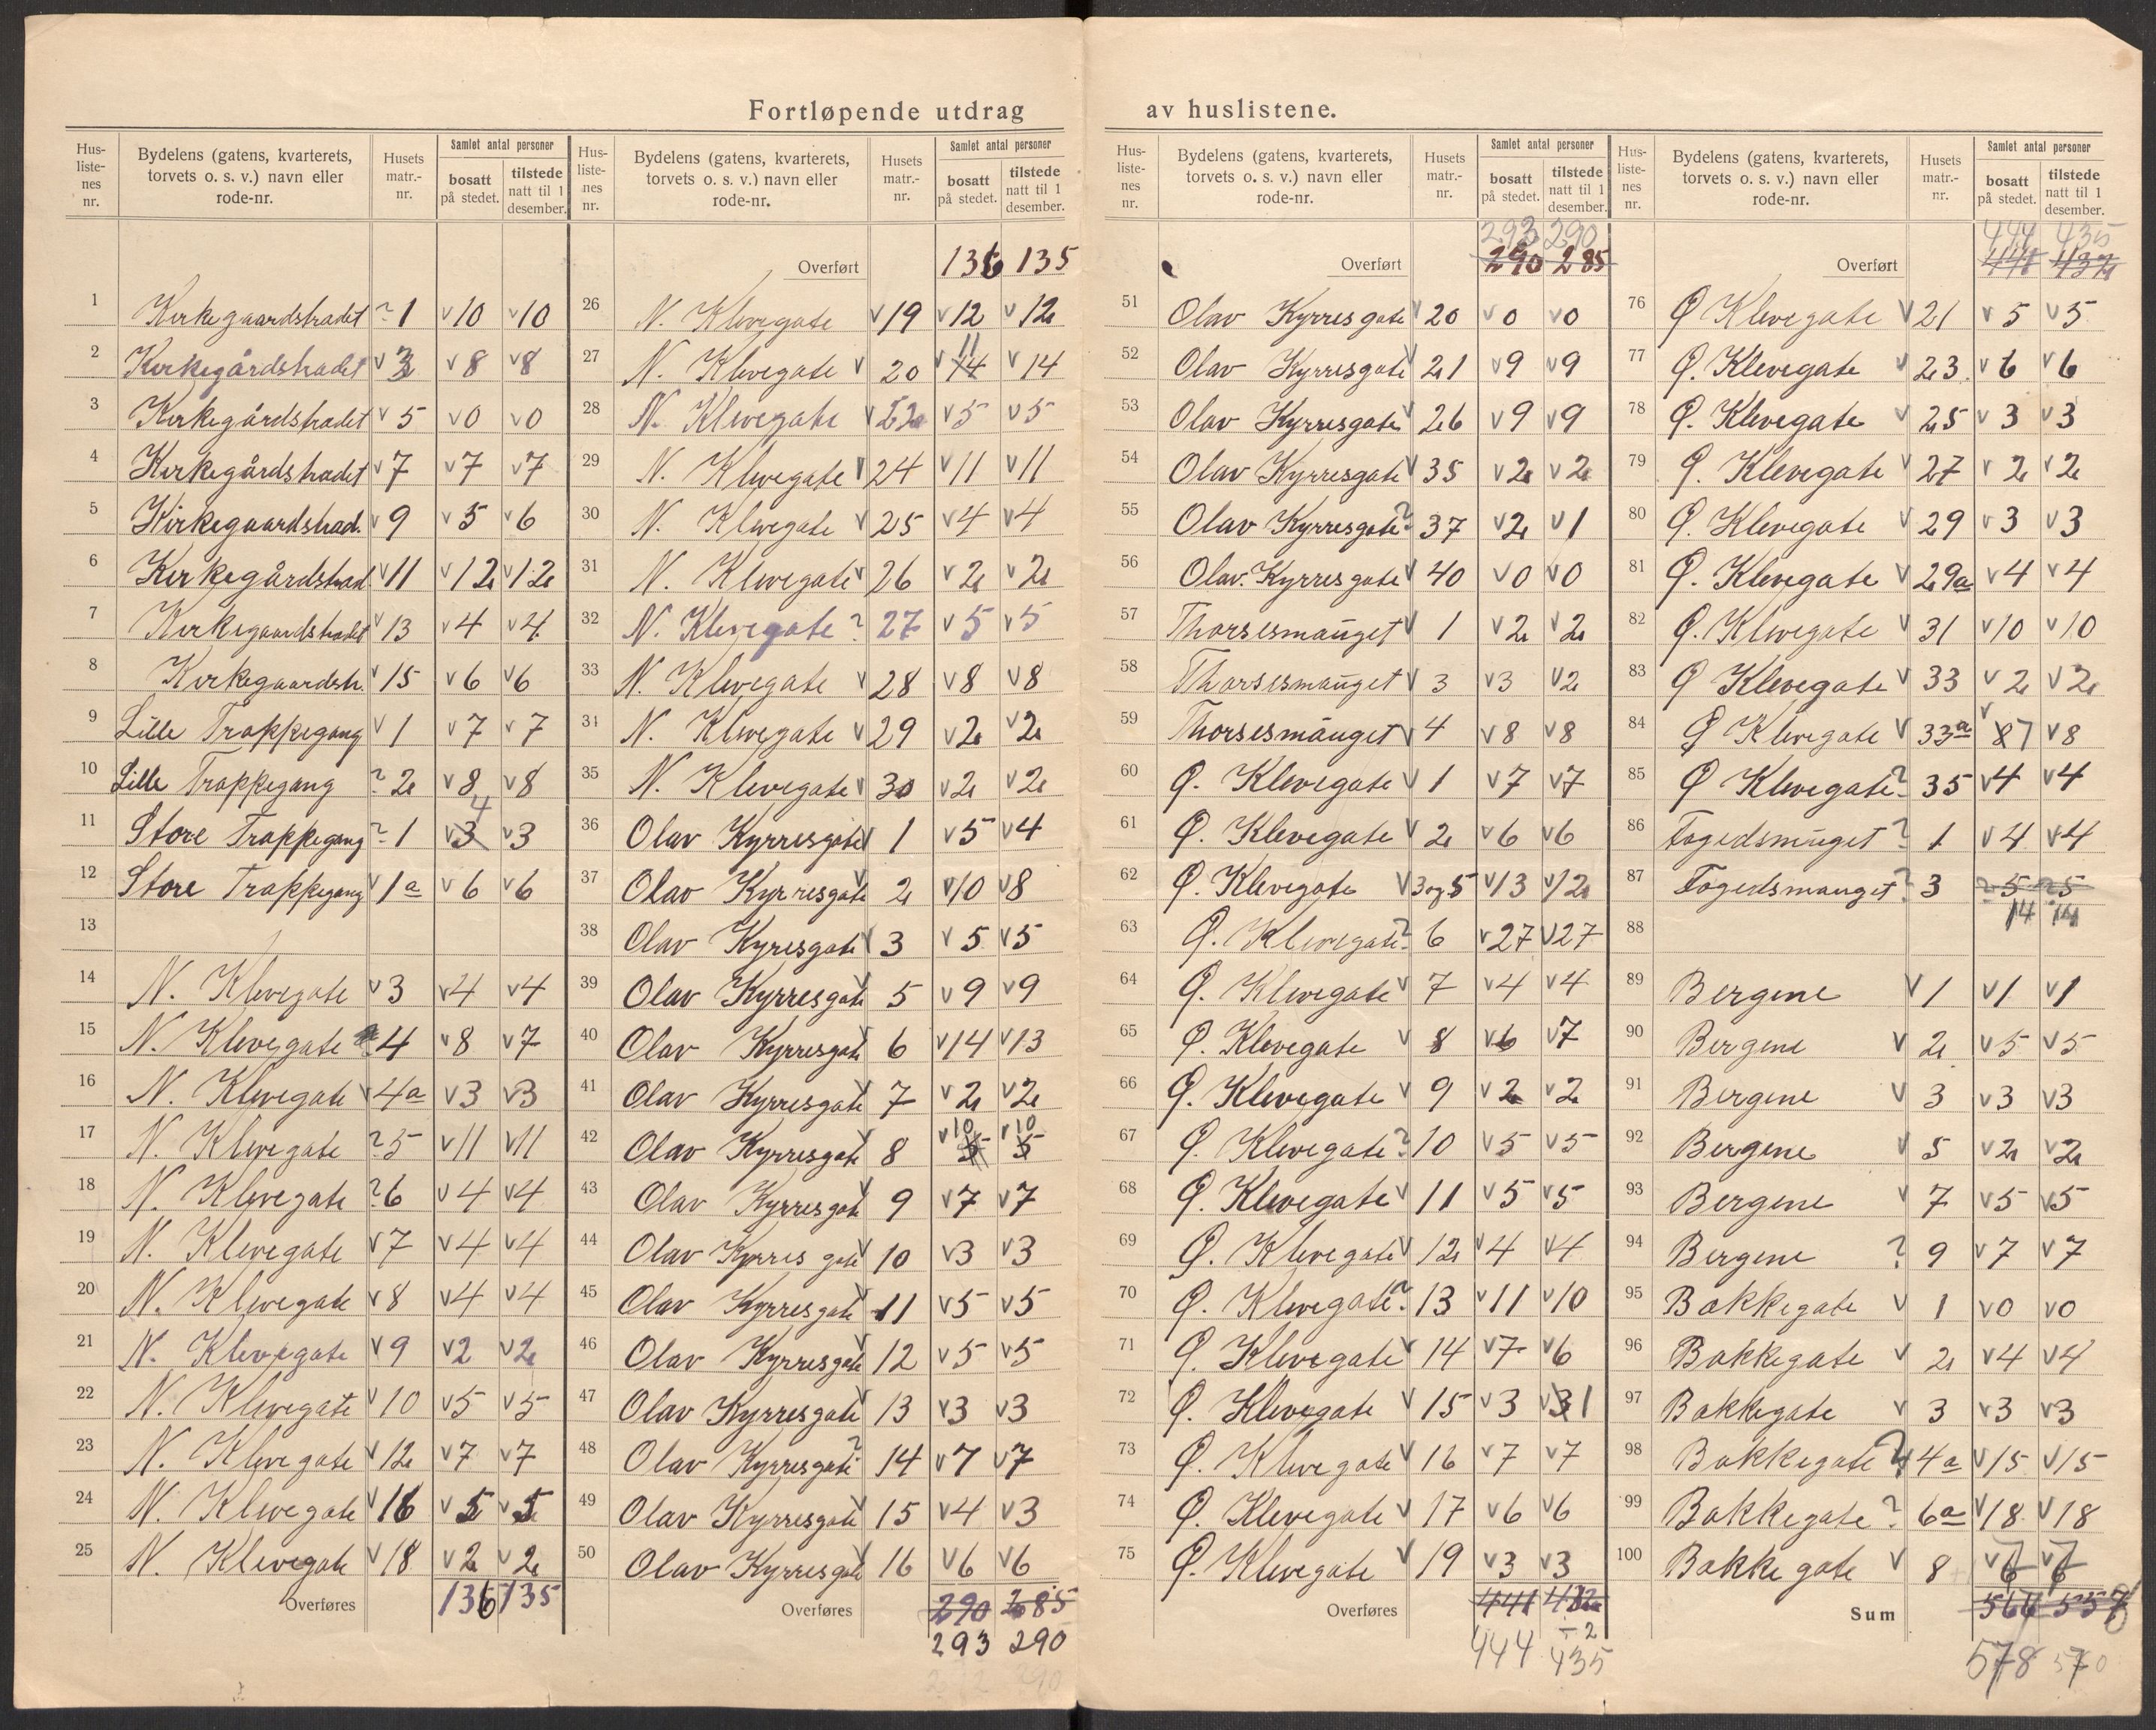 Fortløpende utdrag av huslistene.
Hus-liste-nes nr. | Bydelens (gatens, kvarterets, torvets o. s. v.) navn eller rode-nr. | Husets matr.-nr. | Samlet antal personer bosatt på stedet. | tilstede natt til 1 desember.
1 Kirkegaardstradet ? 1 v 10 v 10
2 Kirkegårdstradet v 3 v 8 v 8
3 Kirkegårdstradet v 5 v 0 v 0
4 Kirkegårdstradet v 7 v 7 v 7
5 Kirkegaardstrad. v 9 v 5 v 6
6 Kirkegårdstrad v 11 v 12 v 12
7 Kirkegaardstradet v 13 v 4 v 4
8 Kirkegaardstr. v 15 v 6 v 6
9 Lille Trappegang v 1 v 7 v 7
10 Lille Trappegang ? 2 v 8 v 8
11 Store Trappegang ? 1 v 3 4 v 3
12 Store Trappegang v 1a v 6 v 6
13
14 N. Klevegate v 3 v 4 v 4
15 N. Klevegate 4 v 8 v 7
16 N. Klevegate v 4a v 3 v 3
17 N. Klevegate ? 5 v 11 v 11
18 N. Klevegate ? 6 v 4 v 4
19 N. Klevegate v 7 v 4 v 4
20 N. Klevegate v 8 v 4 v 4
21 N. Klevegate v 9 v 2 v 2
22 N. Klevegate v 10 v 5 v 5
23 N. Klevegate v 12 v 7 v 7
24 N. Klevegate v 16 v 5 v 5
25 N. Klevegate v 18 v 2 v 2
Overføres 136 135
Hus-liste-nes nr. | Bydelens (gatens, kvarterets, torvets o. s. v.) navn eller rode-nr. | Husets matr.-nr. | Samlet antal personer bosatt på stedet. | tilstede natt til 1 desember.
Overført 136 135
26 N. Klevegate v 19 v 12 v 12
27 N. Klevegate v 20 v 14 11 v 14
28 N. Klevegate v v 5 v 5
29 N. Klevegate v 24 v 11 v 11
30 N. Klevegate v 25 v 4 v 4
31 N. Klevegate v 26 v 2 v 2
32 N. Klevegate ? 27 v 5 v 5
33 N. Klevegate v 28 v 8 v 8
34 N. Klevegate v 29 v 2 v 2
35 N. Klevegate v 30 v 2 v 2
36 Olav Kyrresgate v 1 v 5 v 4
37 Olav Kyrresgate v 2 v 10 v 8
38 Olav Kyresgate v 3 v 5 v 5
39 Olav Kyrresgate v 5 v 9 v 9
40 Olav Kyrresgate v 6 v 14 v 13
41 Olav Kyrresgate v 7 v 2 v 2
42 Olav Kyrresgate v 8 v 10 5 v 10 5
43 Olav Kyrresgate v 9 v 7 v 7
44 Olav Kyrres gate v 10 v 3 v 3
45 Olav Kyrresgate v 11 v 5 v 5
46 Olav Kyrresgate v 12 v 5 v 5
47 Olav Kyrresgate v 13 v 3 v 3
48 Olav Kyrresgate ? 14 v 7 v 7
49 Olav Kyrresgate v 15 v 4 v 3
50 Olav Kyrresgate v 16 v 6 v 6
Overføres 290 285
293 290
Hus-liste-nes nr. | Bydelens (gatens, kvarterets, torvets o. s. v.) navn eller rode-nr. | Husets matr.-nr. | Samlet antal personer bosatt på stedet. | tilstede natt til 1 desember.
293 290
Overført 290 285
51 Olav Kyrres gate v 20 v 0 v 0
52 Olav Kyrresgate v 21 v 9 v 9
53 Olav Kyrresgate v 26 v 9 v 9
54 Olav Kyrresgate v 35 v 2 v 2
55 Olav Kyrresgate ? 37 v 2 v 1
56 Olav. Kyrres gate v 40 v 0 v 0
57 Thorsesmauget v 1 v 2 v 2
58 Thorsesmauget v 3 v 3 v 2
59 Thorsesmauget v 4 v 8 v 8
60 Ø. Klevegate v 1 v 7 v 7
61 Ø. Klevegate v 2 v 6 v 6
62 Ø. Klevegate v 3 og 5 v 13 v 12
63 Ø. Klevegate ? 6 v 27 v 27
64 Ø. Klevegate v 7 v 4 v 4
65 Ø. Klevegate v 8 v 6 v 7
66 Ø. Klevegate v 9 v 2 v 2
67 Ø. Klevegate ? 10 v 5 v 5
68 Ø. Klevegate v 11 v 5 v 5
69 Ø. Klevegate v 12 v 4 v 4
70 Ø. Klevegate ? 13 v 11 v 10
71 Ø. Klevegate v 14 v 7 v 6
72 Ø. Klevegate v 15 v 3 v 3 1
73 Ø. Klevegate v 16 v 7 v 7
74 Ø. Klevegate v 17 v 6 v 6
75 Ø. Klevegate v 19 v 3 v 3
Overføres 441 432
- 2
444 435
Hus-liste-nes nr. | Bydelens (gatens, kvarterets, torvets o. s. v.) navn eller rode-nr. | Husets matr.-nr. | Samlet antal personer bosatt på stedet. | tilstede natt til 1 desember.
444 435
Overført 441 432
76 Ø Klevegate v 21 v 5 v 5
77 Ø. Klevegate v 23 v 6 v 6
78 Ø. Klevegate v 25 v 3 v 3
79 Ø. Klevegate v 27 v 2 v 2
80 Ø. Klevegate v 29 v 3 v 3
81 Ø. Klevegate v 29a v 4 v 4
82 Ø. Klevegate v 31 v 10 v 10
83 Ø Klevegate v 33 v 2 v 2
84 Ø Klevegate v 33a v 8 7 v 8
85 Ø Klevegate ? 35 v 4 v 4
86 Fogedsmuget ? 1 v 4 v 4
87 Fogedsmauget ? 3 ? 5 ? 5
14 14
88
89 Bergene v 1 v 1 v 1
90 Bergene v 2 v 5 v 5
91 Bergene v 3 v 3 v 3
92 Bergene v 5 v 2 v 2
93 Bergene v 7 v 5 v 5
94 Bergene ? 9 v 7 v 7
95 Bakkegate v 1 v 0 v 0
96 Bakkegate v 2 v 4 v 4
97 Bakkegate v 3 v 3 v 3
98 Bakkegate ? 4a v 15 v 15
99 Bakkegate ? 6a v 18 v 18
100 Bakke gate v 8 v 7 v 7
Sum
578 570